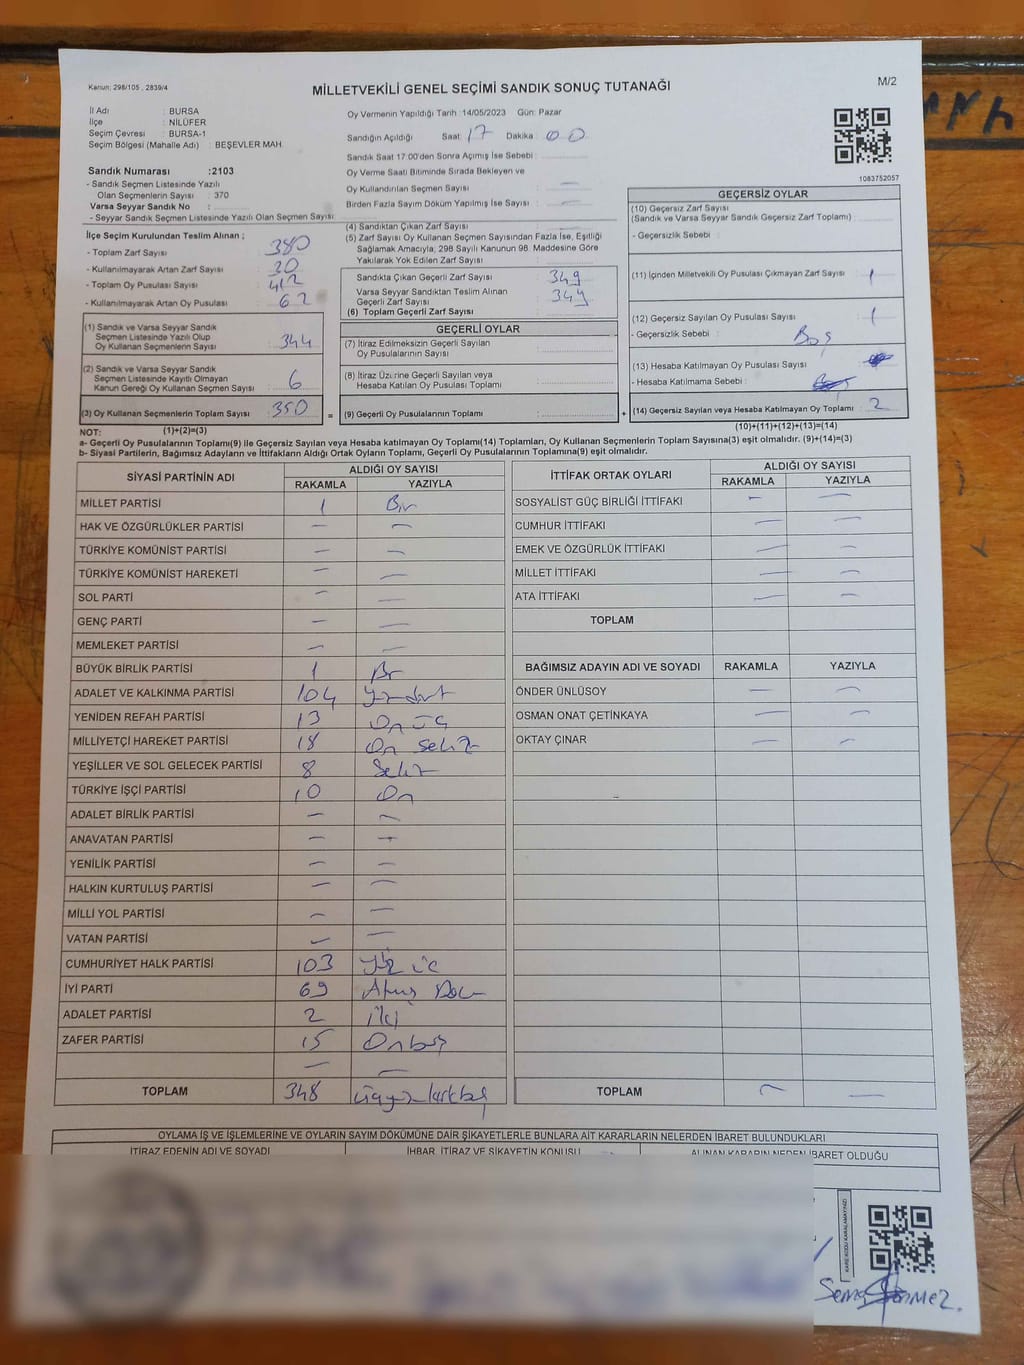 Kanun: 298/105 , 2839/4
MİLLETVEKİLİ GENEL SEÇİMİ SANDIK SONUÇ TUTANAĞI
M/2
İl Adı : BURSA
İlçe : NİLÜFER
Seçim Çevresi : BURSA-1
Seçim Bölgesi (Mahalle Adı) : BEŞEVLER MAH.
Sandık Numarası :2103
- Sandık Seçmen Listesinde Yazılı
Olan Seçmenlerin Sayısı : 370
Varsa Seyyar Sandık No :
- Seyyar Sandık Seçmen Listesinde Yazılı Olan Seçmen Sayısı
Oy Vermenin Yapıldığı Tarih :14/05/2023 Gün: Pazar
Sandığın Açıldığı Saat 17 Dakika 00
Sandık Saat 17.00'den Sonra Açımış İse Sebebi :
Oy Verme Saati Bitiminde Sırada Bekleyen ve
Oy Kullandırılan Seçmen Sayısı : —
Birden Fazla Sayım Döküm Yapılmış İse Sayısı : —
1083752057
İlçe Seçim Kurulundan Teslim Alınan ;
- Toplam Zarf Sayısı : 380
- Kullanılmayarak Artan Zarf Sayısı : 30
- Toplam Oy Pusulası Sayısı : 412
- Kullanılmayarak Artan Oy Pusulası : 62
(1) Sandık ve Varsa Seyyar Sandık
Seçmen Listesinde Yazılı Olup
Oy Kullanan Seçmenlerin Sayısı : 344
(2) Sandık ve Varsa Seyyar Sandık
Seçmen Listesinde Kayıtlı Olmayan
Kanun Gereği Oy Kullanan Seçmen Sayısı : 6
(3) Oy Kullanan Seçmenlerin Toplam Sayısı : 350
(1)+(2)=(3)
(4) Sandıktan Çıkan Zarf Sayısı :
(5) Zarf Sayısı Oy Kullanan Seçmen Sayısından Fazla İse, Eşitliği
Sağlamak Amacıyla, 298 Sayılı Kanunun 98. Maddesine Göre
Yakılarak Yok Edilen Zarf Sayısı :
Sandıkta Çıkan Geçerli Zarf Sayısı : 349
Varsa Seyyar Sandıktan Teslim Alınan
Geçerli Zarf Sayısı : 349
(6) Toplam Geçerli Zarf Sayısı :
GEÇERLİ OYLAR
(7) İtiraz Edilmeksizin Geçerli Sayılan
Oy Pusulalarının Sayısı :
(8) İtiraz Üzerine Geçerli Sayılan veya
Hesaba Katılan Oy Pusulası Toplamı :
= (9) Geçerli Oy Pusulalarının Toplamı : +
GEÇERSİZ OYLAR
(10) Geçersiz Zarf Sayısı
(Sandık ve Varsa Seyyar Sandık Geçersiz Zarf Toplamı) :
- Geçersizlik Sebebi :
(11) İçinden Milletvekili Oy Pusulası Çıkmayan Zarf Sayısı : 1
(12) Geçersiz Sayılan Oy Pusulası Sayısı : 1
- Geçersizlik Sebebi : Boş
(13) Hesaba Katılmayan Oy Pusulası Sayısı :
- Hesaba Katılmama Sebebi :
(14) Geçersiz Sayılan veya Hesaba Katılmayan Oy Toplamı : 2
(10)+(11)+(12)+(13)=(14)
NOT:
a- Geçerli Oy Pusulalarının Toplamı(9) ile Geçersiz Sayılan veya Hesaba katılmayan Oy Toplamı(14) Toplamları, Oy Kullanan Seçmenlerin Toplam Sayısına(3) eşit olmalıdır. (9)+(14)=(3)
b- Siyasi Partilerin, Bağımsız Adayların ve İttifakların Aldığı Ortak Oyların Toplamı, Geçerli Oy Pusulalarının Toplamına(9) eşit olmalıdır.
SİYASİ PARTİNİN ADI ALDIĞI OY SAYISI
RAKAMLA YAZIYLA
MİLLET PARTİSİ 1 Bir
HAK VE ÖZGÜRLÜKLER PARTİSİ — —
TÜRKİYE KOMÜNİST PARTİSİ — —
TÜRKİYE KOMÜNİST HAREKETİ — —
SOL PARTİ — —
GENÇ PARTİ — —
MEMLEKET PARTİSİ — —
BÜYÜK BİRLİK PARTİSİ 1 Bir
ADALET VE KALKINMA PARTİSİ 104 Yüz dört
YENİDEN REFAH PARTİSİ 13 On üç
MİLLİYETÇİ HAREKET PARTİSİ 18 On sekiz
YEŞİLLER VE SOL GELECEK PARTİSİ 8 Sekiz
TÜRKİYE İŞÇİ PARTİSİ 10 On
ADALET BİRLİK PARTİSİ — —
ANAVATAN PARTİSİ — —
YENİLİK PARTİSİ — —
HALKIN KURTULUŞ PARTİSİ — —
MİLLİ YOL PARTİSİ — —
VATAN PARTİSİ — —
CUMHURİYET HALK PARTİSİ 103 Yüz üç
İYİ PARTİ 69 Atmış Dokuz
ADALET PARTİSİ 2 İki
ZAFER PARTİSİ 15 Onbeş
— —
TOPLAM 348
İTTİFAK ORTAK OYLARI ALDIĞI OY SAYISI
RAKAMLA YAZIYLA
SOSYALİST GÜÇ BİRLİĞİ İTTİFAKI — —
CUMHUR İTTİFAKI — —
EMEK VE ÖZGÜRLÜK İTTİFAKI — —
MİLLET İTTİFAKI — —
ATA İTTİFAKI — —
TOPLAM
BAĞIMSIZ ADAYIN ADI VE SOYADI RAKAMLA YAZIYLA
ÖNDER ÜNLÜSOY — —
OSMAN ONAT ÇETİNKAYA — —
OKTAY ÇINAR — —
TOPLAM — —
OYLAMA İŞ VE İŞLEMLERİNE VE OYLARIN SAYIM DÖKÜMÜNE DAİR ŞİKAYETLERLE BUNLARA AİT KARARLARIN NELERDEN İBARET BULUNDUKLARI
İTİRAZ EDENİN ADI VE SOYADI İHBAR, İTİRAZ VE ŞİKAYETİN KONUSU ALINAN KARARIN NEDEN İBARET OLDUĞU
KARE KODU KARALAMAYINIZ!